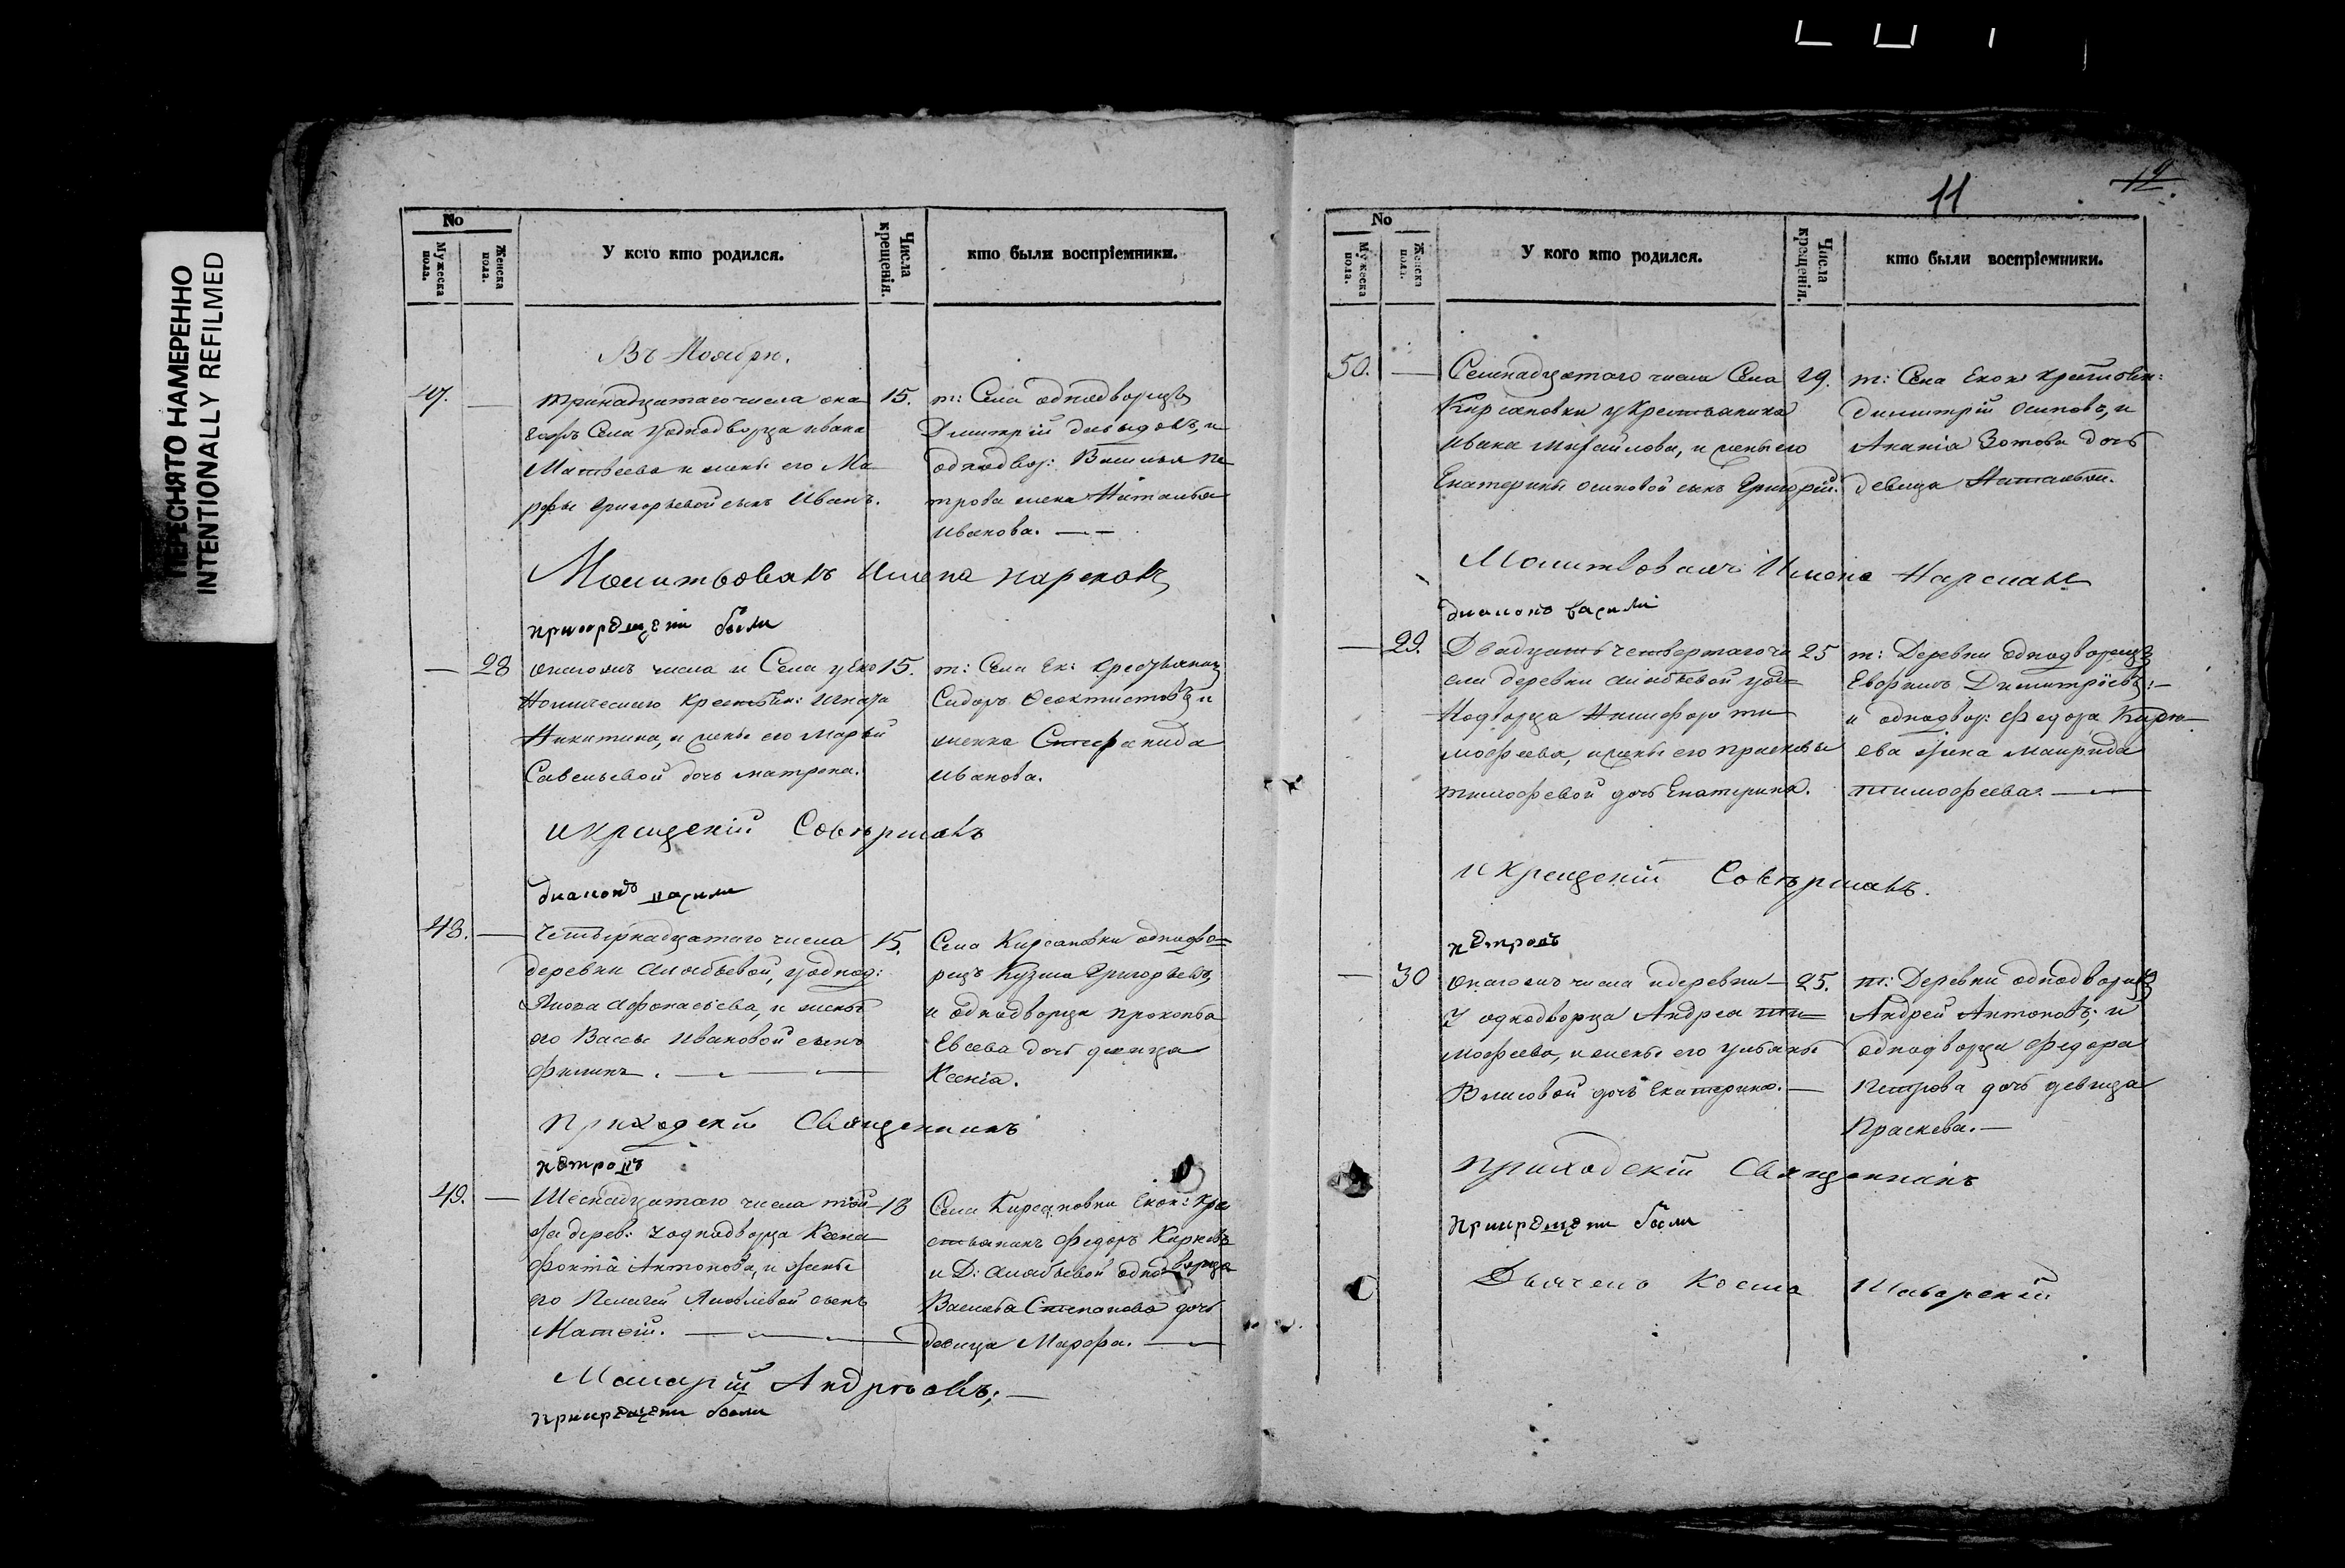 ПЕРЕСНЯТО НАМЕРЕННО
INTENTIONALLY REFILMED
No
Мужеска пола.
Женска пола.
У кого кто родился.
Числа крещенія.
кто были воспріемники.
Въ Ноябри.
47. — тринадцатаго числа она
гожъ Села у однодворца ивана
Матвеева и жены его Ма
рфы Григорьевой сынъ Иванъ.
15.
т: Села однодворцъ
Дмитрій давыдовъ, и
однодвор: Василья пе
трова жена Наталья
иванова. — —
Молитвовалъ Имена нарекалъ
прикрещени были
— 28 онагожъ числа и Села у Еко
номическаго крестьян:
Никитина, и жены его Марьи
Савельевой дочь матрона.
15.
т: Села Ек: крестьянинъ
Сидоръ Феоктистовъ и
женка Стефанида
иванова.
и крещеніи Совершалъ
диаконъ васили
48. — Четырнадцатаго числа
деревни Алябьевой, у однод:
Якова Афонасьева, и жены
его Вассы Ивановой сынъ
филипъ. — —
15.
Села Кирсановки однодво=
рецъ Кузма Григорьевъ,
и однодворца прокопья
Евсева дочь девица
Ксенія.
приходскій Священникъ
петровъ
49. — Шеснадцатаго числа той
же дерев: У однодворца Ксена
фонта Антонова, и жены
его Пелагеи Яковлевой сынъ
Матвѣй. — —
18
Села Кирсановки Екон: кре
стьянинъ федоръ Карповъ
и Д: Алябьевой однодворца
Василья Степанова дочь
девица Марфа. —
Макарій Андреевъ; —
прикрещени были
11
12.
No
Мужеска пола.
Женска пола.
У кого кто родился.
Числа крещенія.
кто были воспріемники.
50. — Семнадцатаго числа Села
Кирсановки у крестьянина
ивана михайлова, и жены его
Екатерины осиповой сынъ Григорій.
19.
т: Села Екон: крестьян:
димитрій осиповъ, и
Ананіа Зотова дочь
девица Наталья.
Молитвовалъ Имена Нарекалъ
диаконъ васили
— 29. Двадцать четвертаго чи
сла деревни Алябьевой у од=
нодворца Никифора ти
мофеева, и жены его прасковьи
тимофевой дочь Екатерина.
25
т: Деревни однодворецъ
Димитріевъ: —
и однодвор: федора
ева жена
тимофеева. —
и крещеніи Совершалъ.
петровъ
— 30 онагожъ числа и деревни —
У однодворца Андрея ти=
мофеева, и жены его ульяны
Власовой дочь Екатерина. —
25.
т: Деревни однодворецъ
Андрей Антоновъ; и
однодворца федора
петрова дочь девица
Праскева. —
приходскій Священникъ
прикрещени были
Дьячекъ Косма